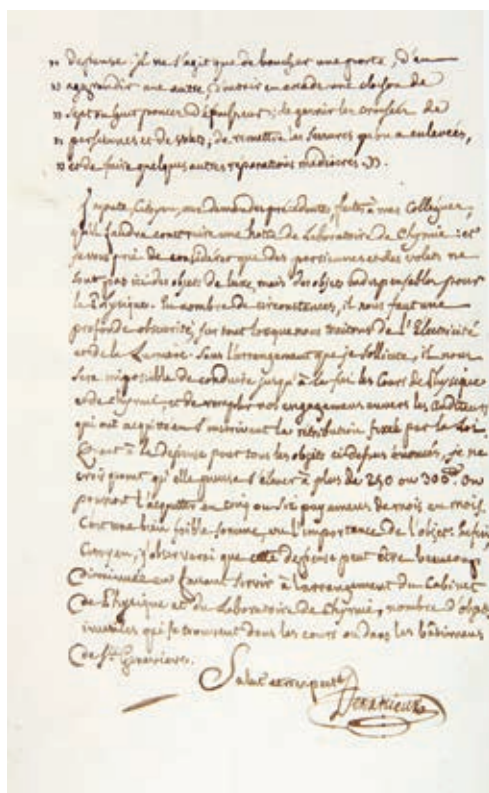 " depense. il ne s'agit que de boucher une porte, d'en
" aggrandir une autre, d'ouvrir en arcade une cloison de
" sept ou huit pouces d'épaisseur ; de garnir les croisées de
" persiennes et de volets, de remettre les serrures qu'on a enlevées,
" et de faire quelques autres reparations mediocres. ".
J'ajoute, Citoyen, aux demandes précédentes, faites à mes Collegues,
qu'il faudra construire une hotte de Laboratoire de Chymie : et
je vous prie de considérer que des persiennes et des volets ne
sont pas ici des objets de luxe, mais des objets indispensables pour
la Physique. En nombre de circonstances, il nous faut une
profonde obscurité, sur tout lorsque nous traitons de l'Electricité
et de la Lumiere. Sans l'arrangement que je sollicite, il nous
sera impossible de conduire jusqu'à la fin les Cours de Physique
et de Chymie, et de remplir nos engagemens envers les Auditeurs
qui ont acquitté en s'inscrivant la retribution fixée par la Loi.
Quant à la depense pour tous les objets ci-dessus énoncés, je ne
crois point qu'elle puisse s'élever à plus de 250 ou 300 ou
pourroit l'acquitter en cinq ou six payemens de mois en mois.
C'est une bien foible somme, vu l'importance de l'objet. Enfin,
Citoyen, j'observerai que cette depense peut être beaucoup
diminuée en faisant servir à l'arrangement du Cabinet
de Physique et du Laboratoire de Chymie, nombre d'objets
inutiles qui se trouvent dans les cours ou dans les bâtimens
de Ste. Genevieve.
Salut et respect